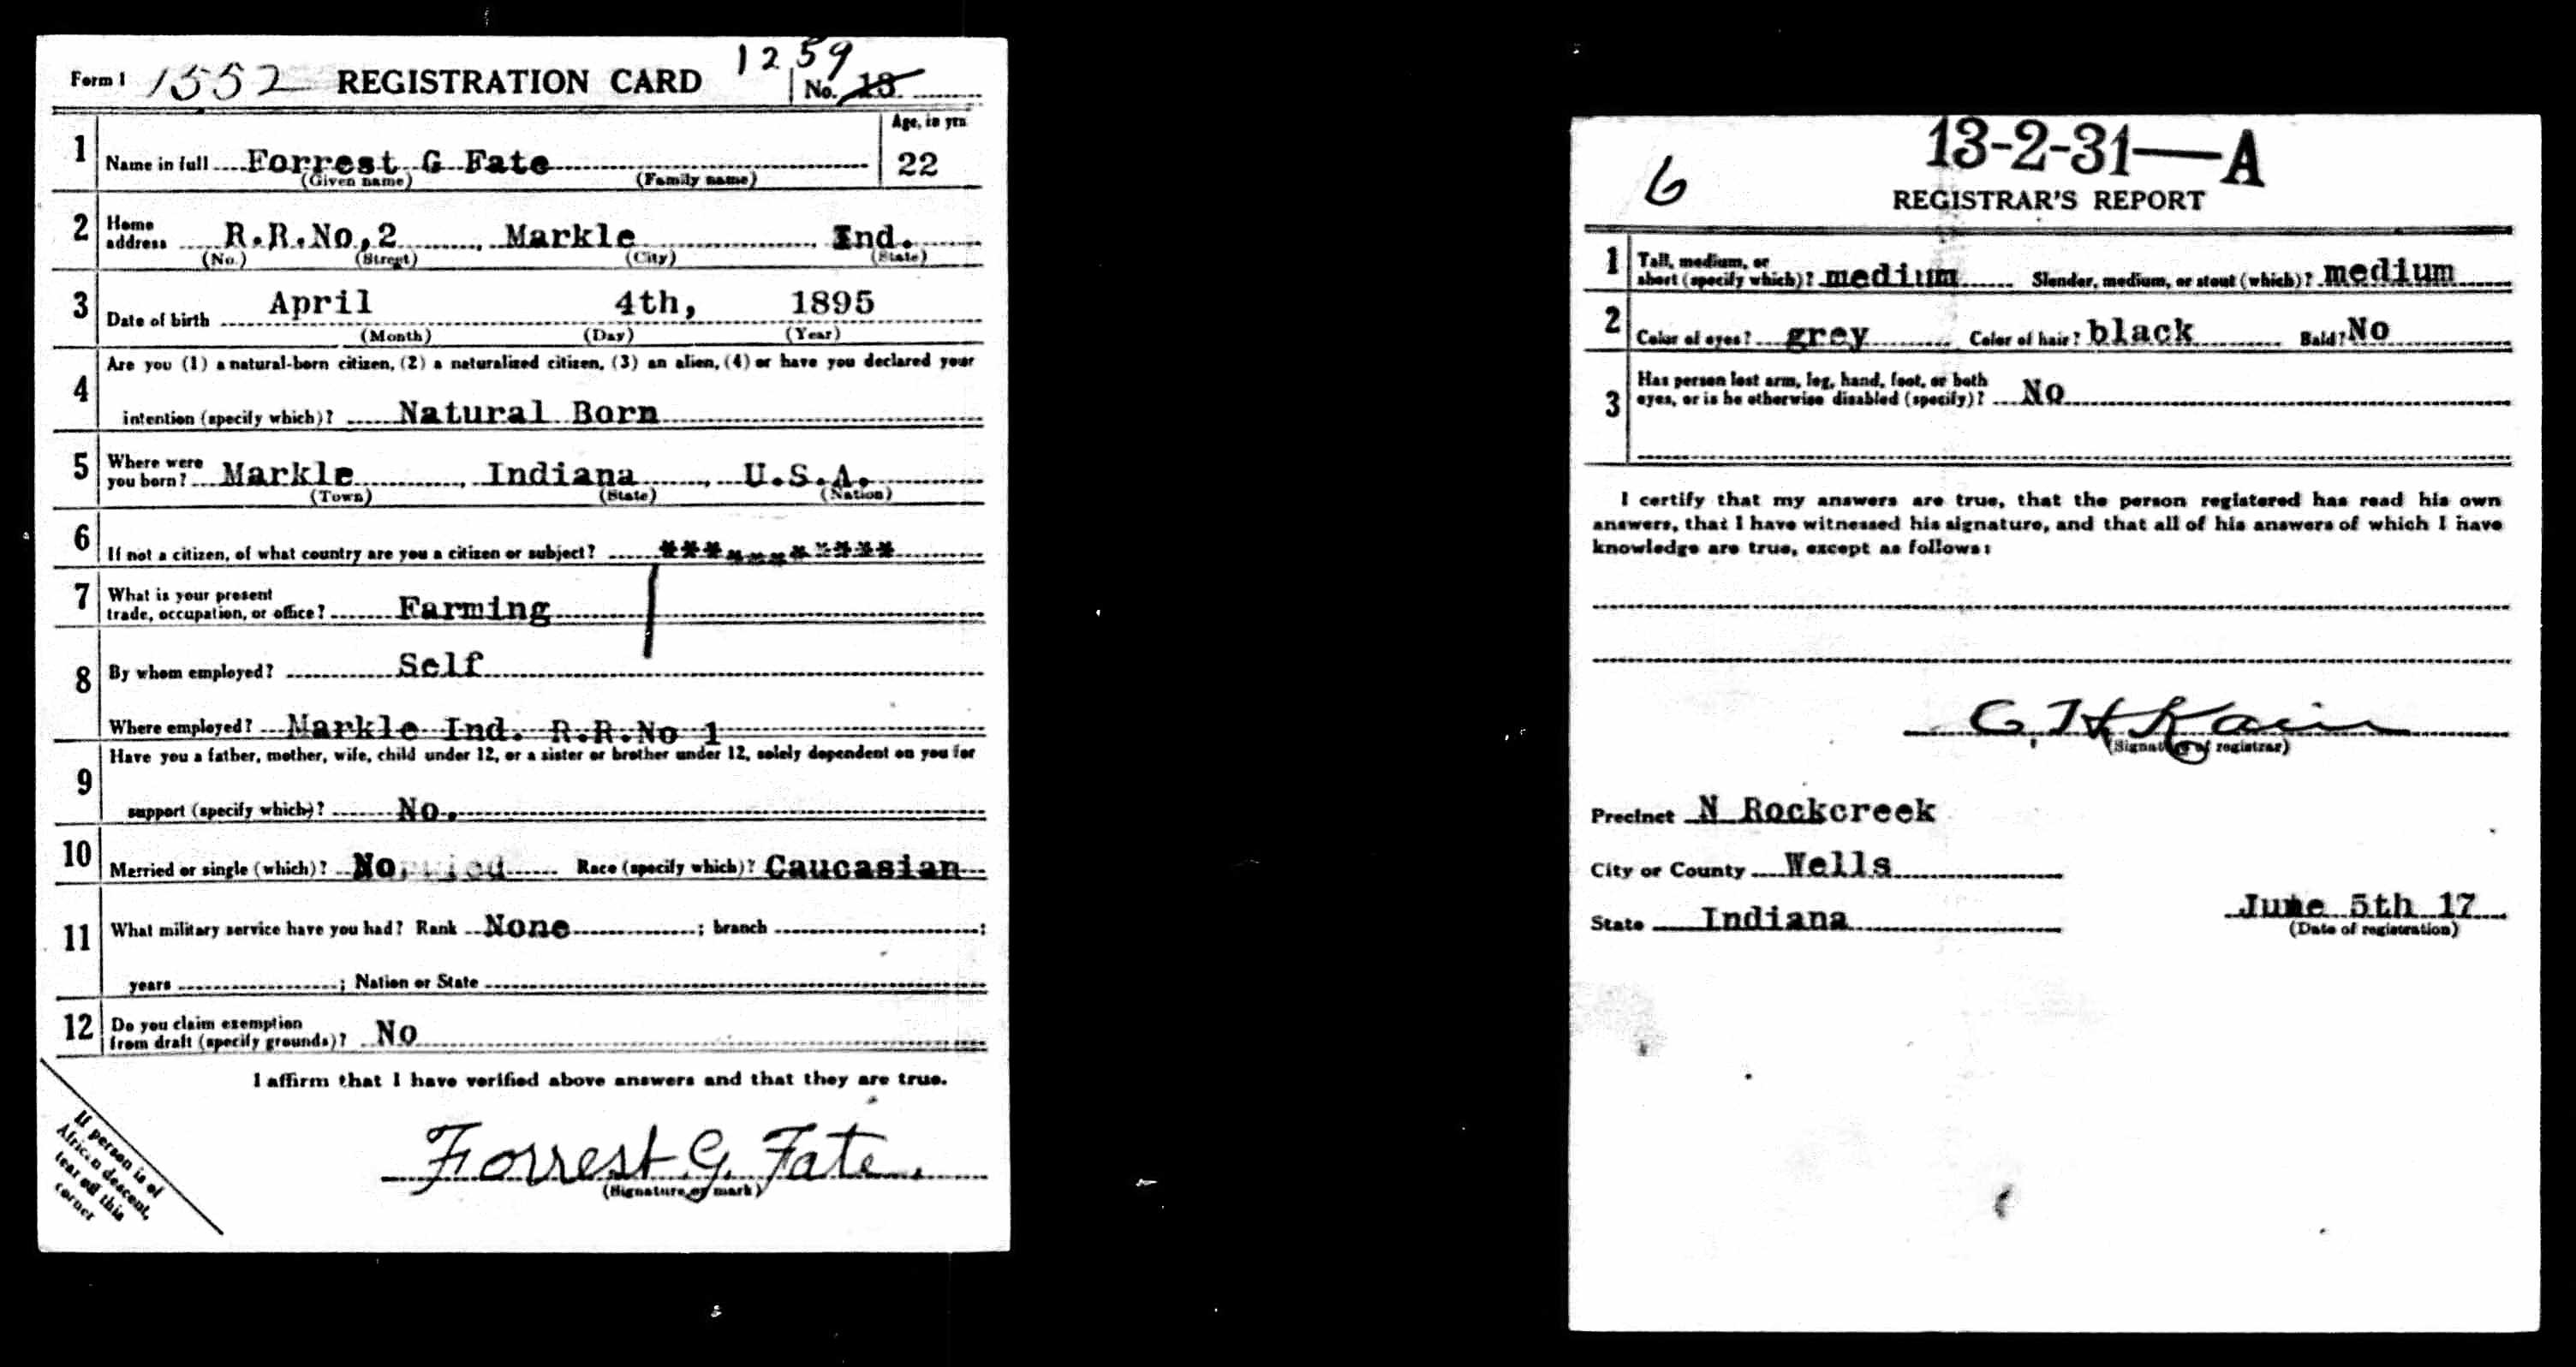 Form 1 1552 REGISTRATION CARD 1259 No. 13
Age, in yrs
1 Name in full Forrest G Fate 22
(Given name) (Family name)
2 Home address R.R.No,2, Markle, Ind.
(No.) (Street) (City) (State)
3 Date of birth April 4th, 1895
(Month) (Day) (Year)
4 Are you (1) a natural-born citizen, (2) a naturalized citizen, (3) an alien, (4) or have you declared your
intention (specify which)? Natural Born
5 Where were you born? Markle, Indiana, U.S.A.
(Town) (State) (Nation)
6 If not a citizen, of what country are you a citizen or subject? ***********
7 What is your present
trade, occupation, or office? Farming
8 By whom employed? Self
Where employed? Markle Ind. R.R.No 1
9 Have you a father, mother, wife, child under 12, or a sister or brother under 12, solely dependent on you for
support (specify which)? No.
10 Married or single (which)? No Race (specify which)? Caucasian
11 What military service have you had? Rank None ; branch ;
years ; Nation or State
12 Do you claim exemption
from draft (specify grounds)? No
I affirm that I have verified above answers and that they are true.
Forrest G. Fate.
(Signature or mark)
If person is of
African descent,
tear off this
corner
6 13-2-31—A
REGISTRAR'S REPORT
1 Tall, medium, or
short (specify which)? medium Slender, medium, or stout (which)? medium
2 Color of eyes? grey Color of hair? black Bald? No
3 Has person lost arm, leg, hand, foot, or both
eyes, or is he otherwise disabled (specify)? No
I certify that my answers are true, that the person registered has read his own
answers, that I have witnessed his signature, and that all of his answers of which I have
knowledge are true, except as follows:
C. H. Kain
(Signature of registrar)
Precinct N Rockcreek
City or County Wells
State Indiana June 5th 17
(Date of registration)